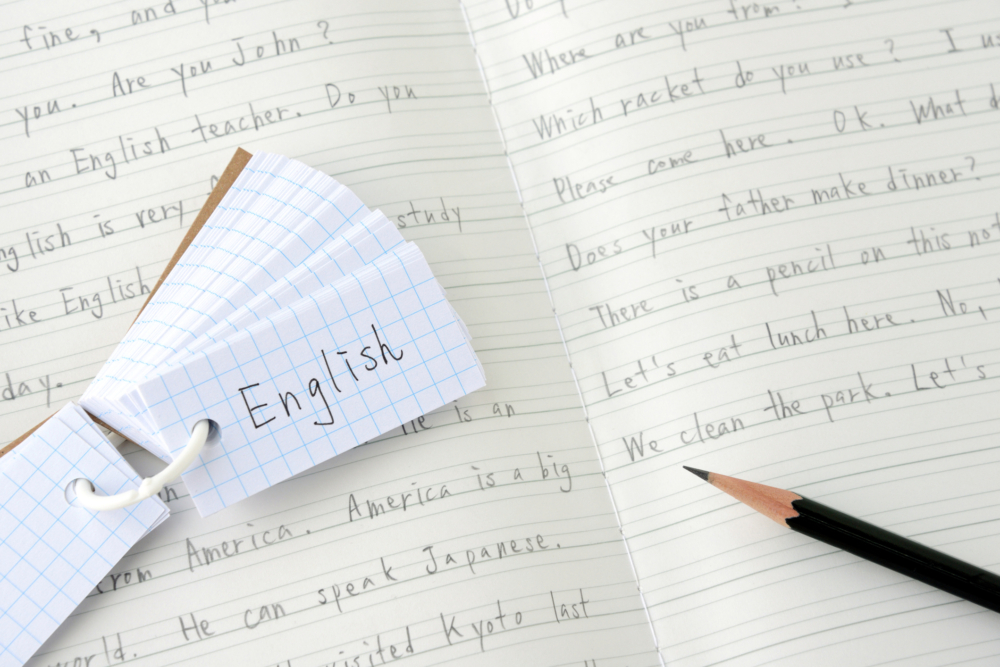 fine, and
you. Are you John?
an English teacher. Do you
is very
study
English
day.
English
is an
America. America is a big
He can speak Japanese.
Kyoto last
Where are you from?
Which racket do you use? I
Please come here. OK. What
Does your father make dinner?
There is a pencil on this
Let's eat lunch here. No,
We clean the park. Let's